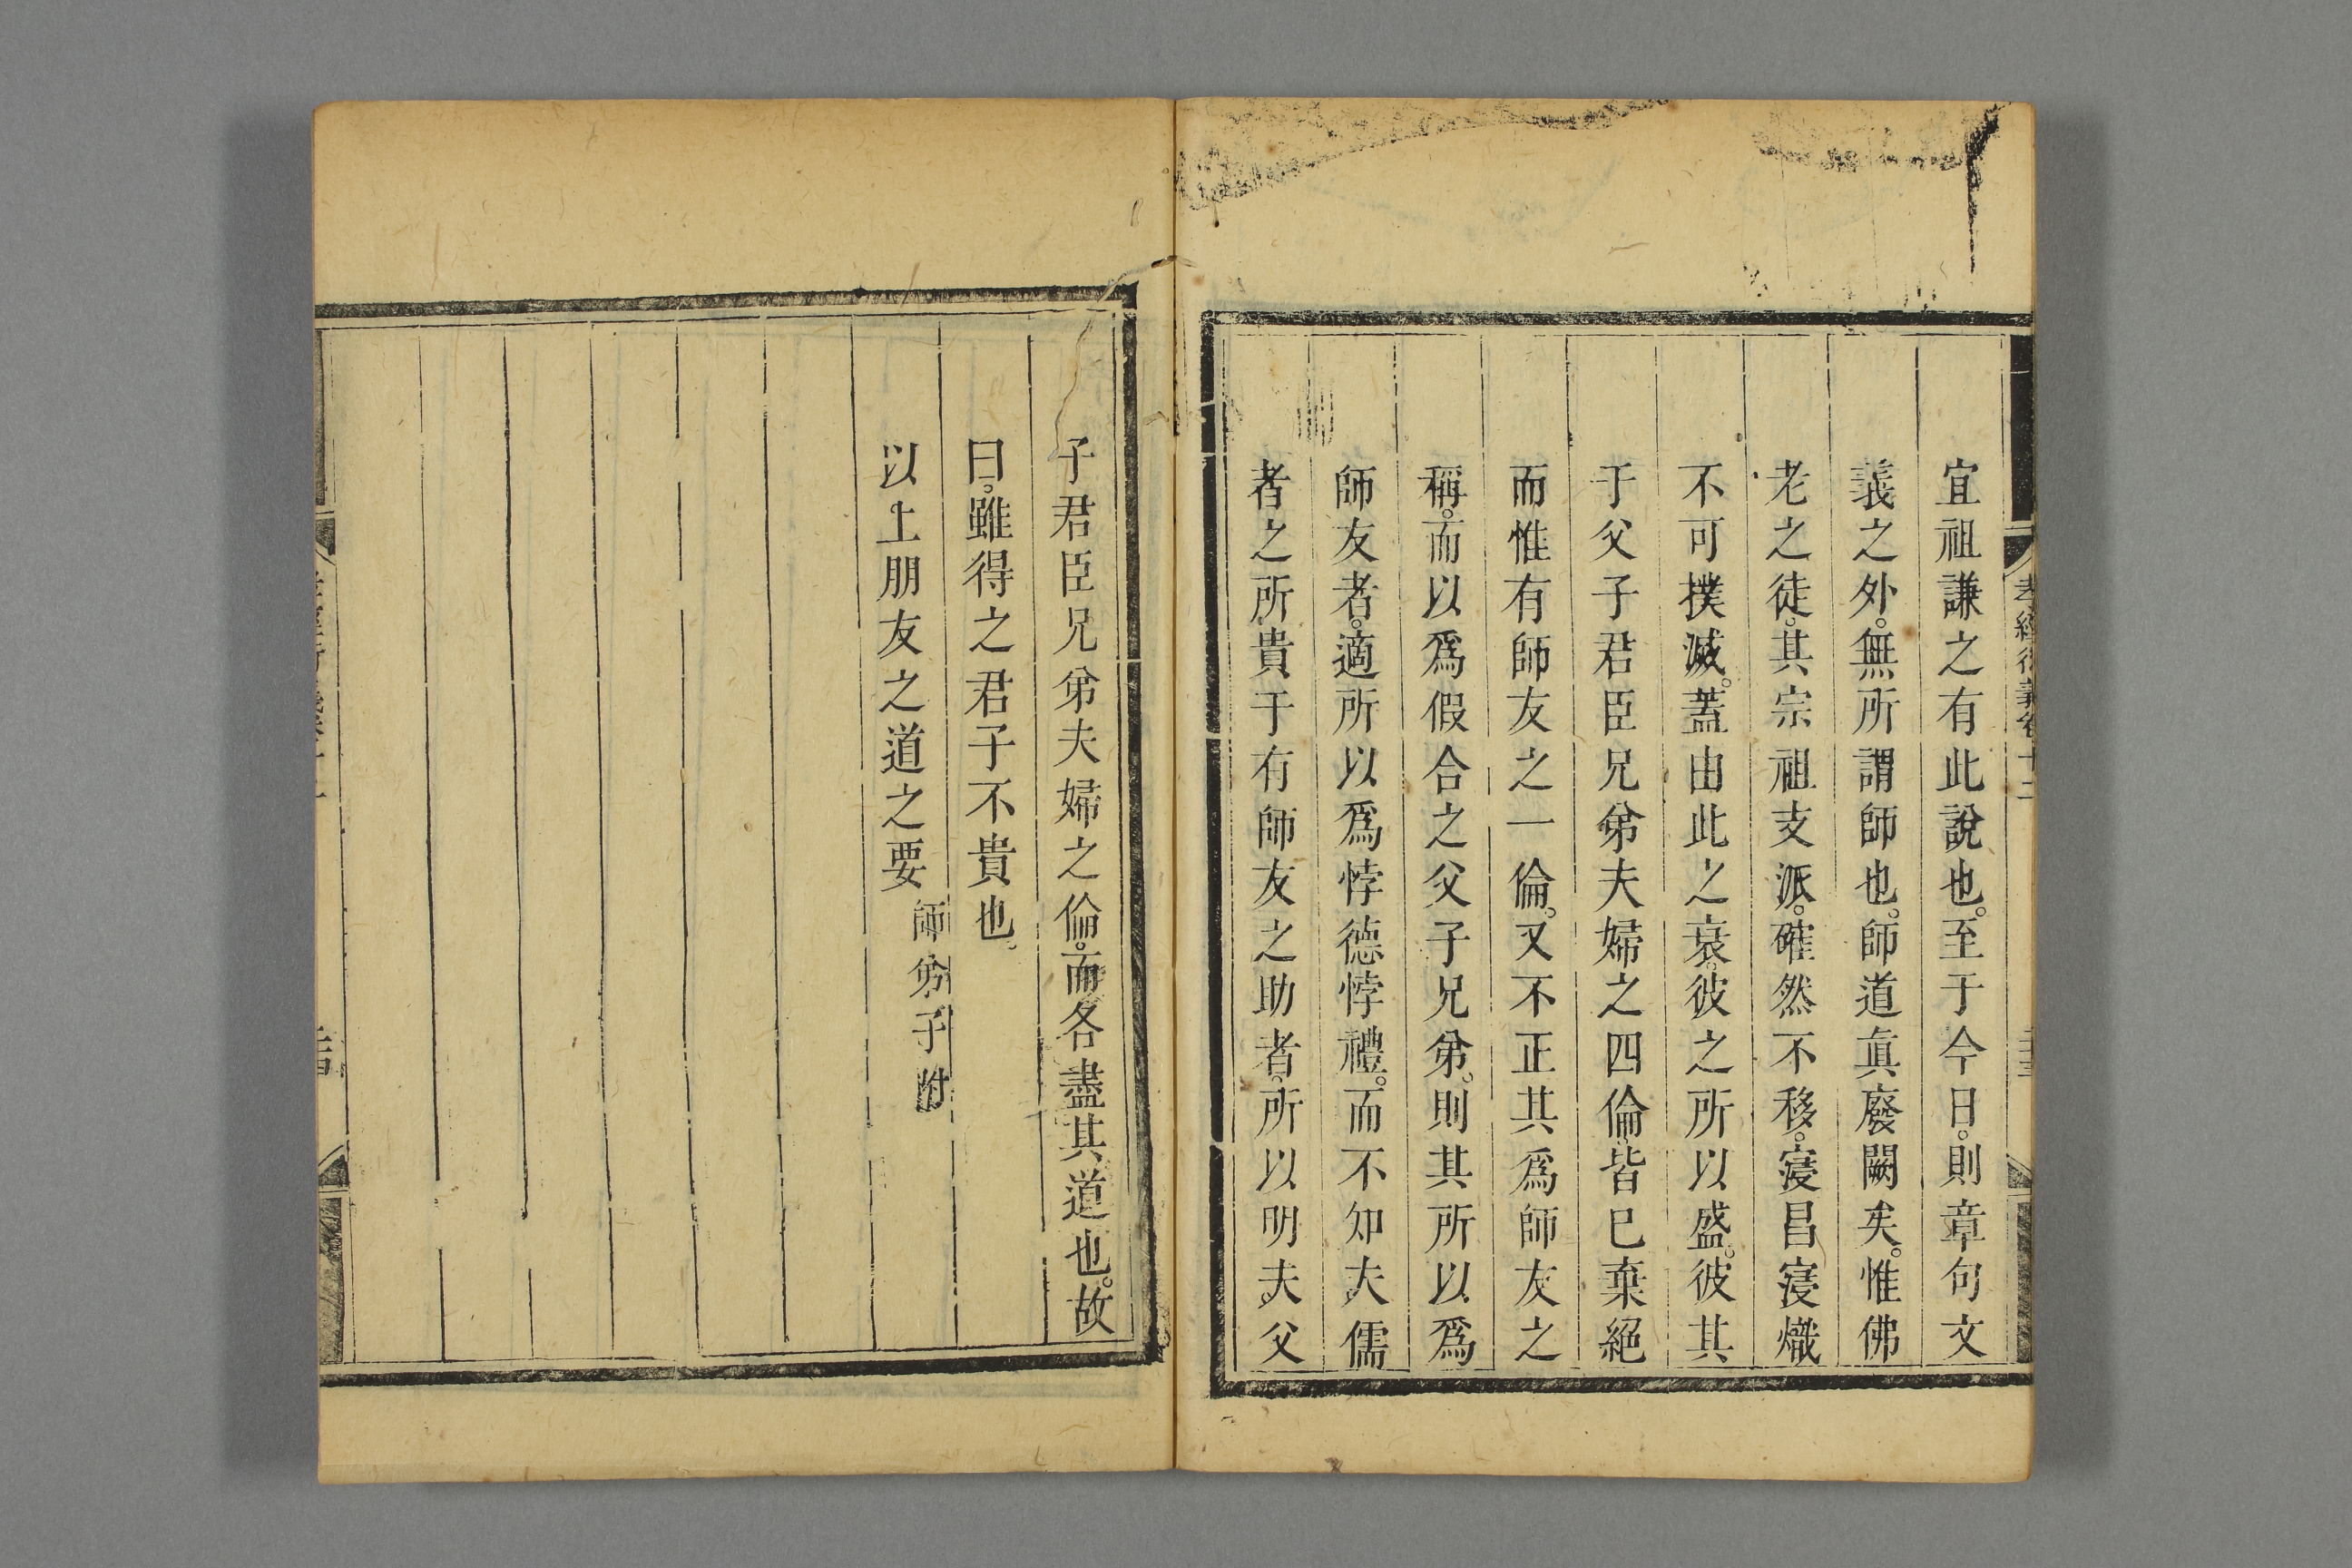 孝經衍義卷十二
宜祖謙之有此說也。至于今日。則章句文
義之外。無所謂師也。師道眞廢闕矣。惟佛
老之徒。其宗祖支派。確然不移。寖昌寖熾
不可撲滅。蓋由此之衰。彼之所以盛。彼其
于父子君臣兄弟夫婦之四倫。皆已棄絕
而惟有師友之一倫。又不正其爲師友之
稱。而以爲假合之父子兄弟。則其所以爲
師友者。適所以爲悖德悖禮。而不知夫儒
者之所貴于有師友之助者。所以明夫。父
子君臣兄弟夫婦之倫。而各盡其道也。故
曰。雖得之君子不貴也。
以上朋友之道之要師弟子附